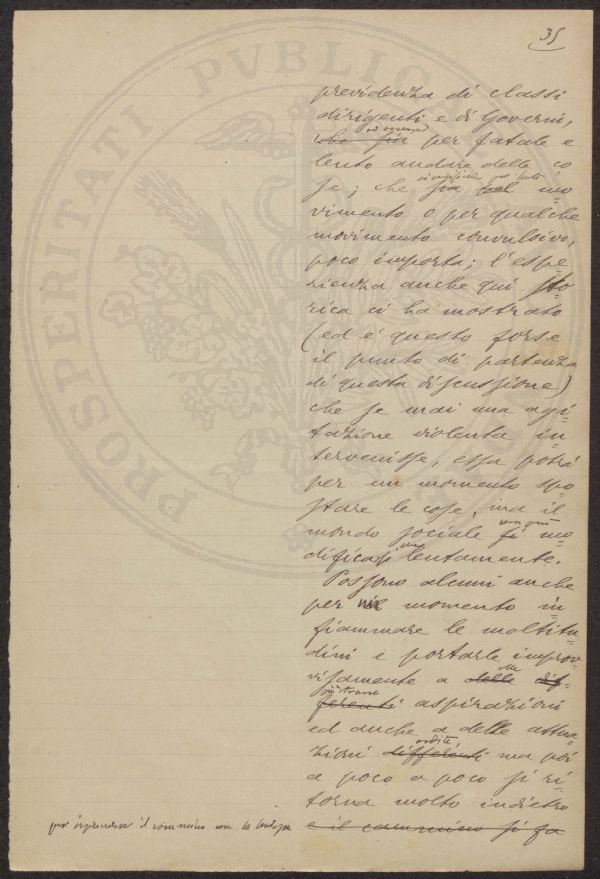 35
PROSPERITATI PVBLICAE
previdenza di classi
dirigenti e di Governi,
che sia per fatale e
lento andare delle co=
se; che sia nel mo=
vimento o per qualche
movimento convulsivo,
poco importa; l'espe=
rienza anche qui sto=
rica ci ha mostrato
(ed è questo forse
il punto di partenza
di questa discussione)
che se mai una agi=
tazione violenta in=
tervenisse, essa potrà
per un momento spo=
stare le cose, ma il
mondo sociale non può
si mo=
dificasi lentamente.
Possono alcuni anche
per un momento in=
fiammare le moltitu=
dini e portarle improv=
visamente a delle dif=
più strane
ferenti aspirazioni
ed anche a delle attua=
ardite,
zioni differenti ma poi
a poco a poco si ri=
torna molto indietro
e il cammino si fa
per riprendere il cammino con